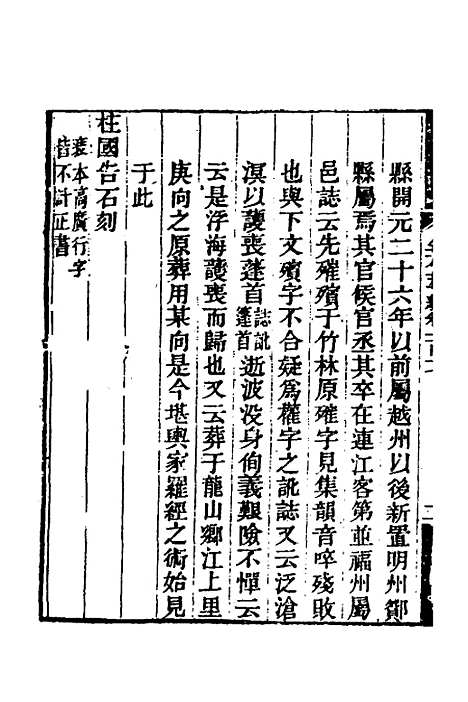 縣開元二十六年以前屬越州以後新置明州鄮
縣屬焉其官候官丞其卒在連江客第並福州屬
邑誌云先確殯于竹林原確字見集韻音啐殘敗
也與下文殯字不合疑爲權字之訛誌又云泛滄
溟以護喪蓬首誌訛篷首逝波没身徇義艱險不憚云
云是浮海護喪而歸也又云葬于龍山鄉江上里
庚向之原葬用某向是今堪輿家羅經之術始見
于此
柱國告石刻
裱本高廣行字
皆不計正書